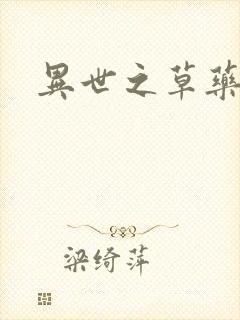 異世之草藥
梁绮萍